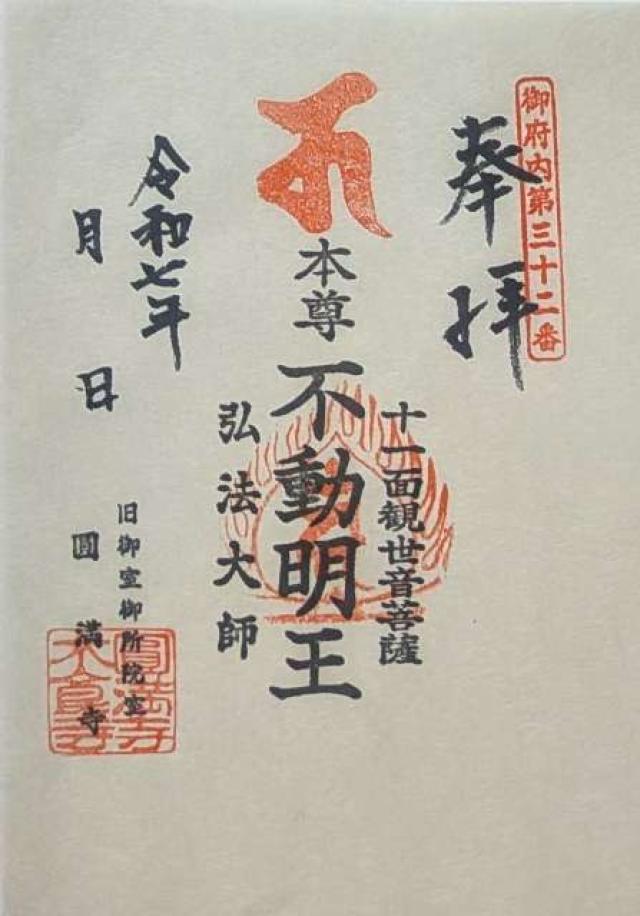 御府内第三十二番
奉拝
十一面観世音菩薩
本尊 不動明王
弘法大師
令和七年
月 日
旧御室御所院室
圓満寺